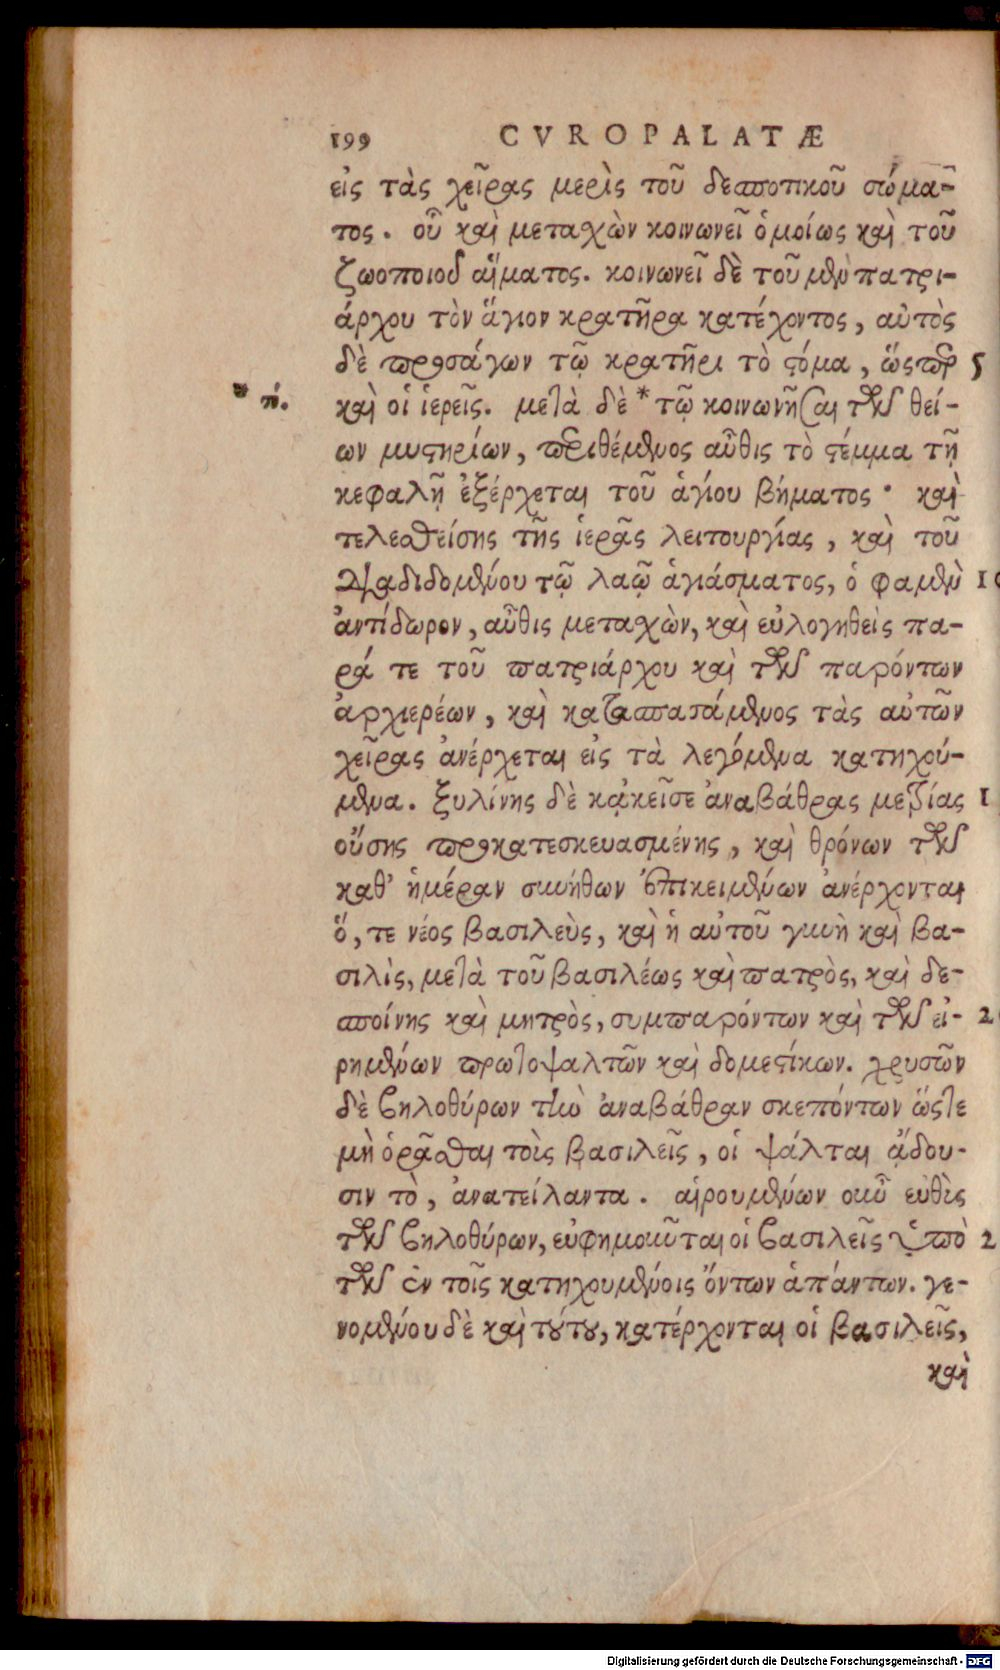 199 CVROPALATÆ
εἰς τὰς χεῖρας μερὶς τοῦ δεσποτικοῦ σώμα-
τος. οὗ καὶ μεταχὼν κοινωνεῖ ὁμοίως καὶ τοῦ
ζωοποιοῦ αἵματος. κοινωνεῖ δὲ τοῦ μὲν πατρι-
άρχου τὸν ἅγιον κρατῆρα κατέχοντος, αὐτὸς
δὲ προσάγων τῷ κρατῆρι τὸ στόμα, ὥσπερ 5
* τό. καὶ οἱ ἱερεῖς. μετὰ δὲ * τῷ κοινωνῆσαι τῶν θεί-
ων μυστηρίων, περιθέμενος αὖθις τὸ στέμμα τῇ
κεφαλῇ ἐξέρχεται τοῦ ἁγίου βήματος· καὶ
τελεσθείσης τῆς ἱερᾶς λειτουργίας, καὶ τοῦ
διαδιδομένου τῷ λαῷ ἁγιάσματος, ὅ φαμεν 10
ἀντίδωρον, αὖθις μεταχὼν, καὶ εὐλογηθεὶς πα-
ρά τε τοῦ πατριάρχου καὶ τῶν παρόντων
ἀρχιερέων, καὶ κατασπασάμενος τὰς αὐτῶν
χεῖρας ἀνέρχεται εἰς τὰ λεγόμενα κατηχού-
μενα. ξυλίνης δὲ κἀκεῖσε ἀναβάθρας μετρίας 1
οὔσης προκατεσκευασμένης, καὶ θρόνων τῶν
καθ' ἡμέραν συνήθων ἐπικειμένων ἀνέρχονται
ὅ, τε νέος βασιλεὺς, καὶ ἡ αὐτοῦ γυνὴ καὶ βα-
σιλὶς, μετὰ τοῦ βασιλέως καὶ πατρὸς, καὶ δε-
σποίνης καὶ μητρὸς, συμπαρόντων καὶ τῶν εἰ- 2
ρημένων πρωτοψαλτῶν καὶ δομεστίκων. χρυσῶν
δὲ βηλοθύρων τὴν ἀναβάθραν σκεπόντων ὥστε
μὴ ὁρᾶσθαι τοὶς βασιλεῖς, οἱ ψάλται ᾄδου-
σιν τὸ, ἀνατείλαντα. αἰρουμένων οὖν εὐθὶς
τῶν βηλοθύρων, εὐφημοῦνται οἱ βασιλεῖς ὑπὸ 2
τῶν ἐν τοῖς κατηχουμένοις ὄντων ἁπάντων. γε-
νομένου δὲ καὶ τούτου, κατέρχονται οἱ βασιλεῖς,
καὶ
Digitalisierung gefördert durch die Deutsche Forschungsgemeinschaft - DFG